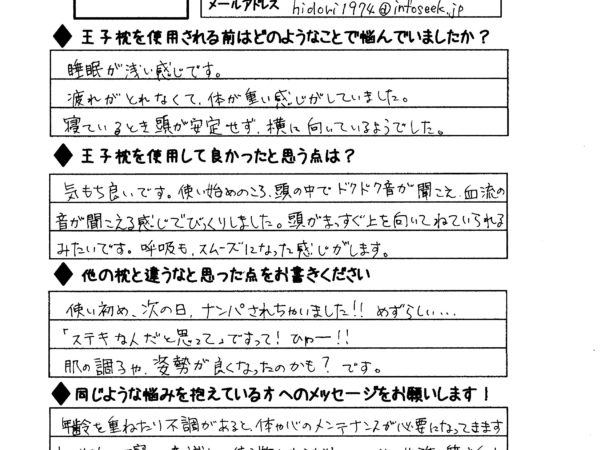 メールアドレス hidori1974@infoseek.jp
◆王子枕を使用される前はどのようなことで悩んでいましたか?
睡眠が浅い感じです。
疲れがとれなくて、体が重い感じがしていました。
寝ているとき頭が安定せず、横に向いているようでした。
◆王子枕を使用して良かったと思う点は?
気もち良いです。使い始めのころ、頭の中でドクドク音が聞こえ、血流の
音が聞こえる感じでびっくりしました。頭がまっすぐ上を向いてねていられる
みたいです。呼吸も、スムーズになった感じがします。
◆他の枕と違うなと思った点をお書きください
使い初め、次の日、ナンパされちゃいました!! めずらしい…
「ステキな人だと思って」ですって! ひゅー!!
肌の調子や、姿勢が良くなったのかも? です。
◆同じような悩みを抱えている方へのメッセージをお願いします!
年齢を重ねたり不調があると、体や心のメンテナンスが必要になってきます